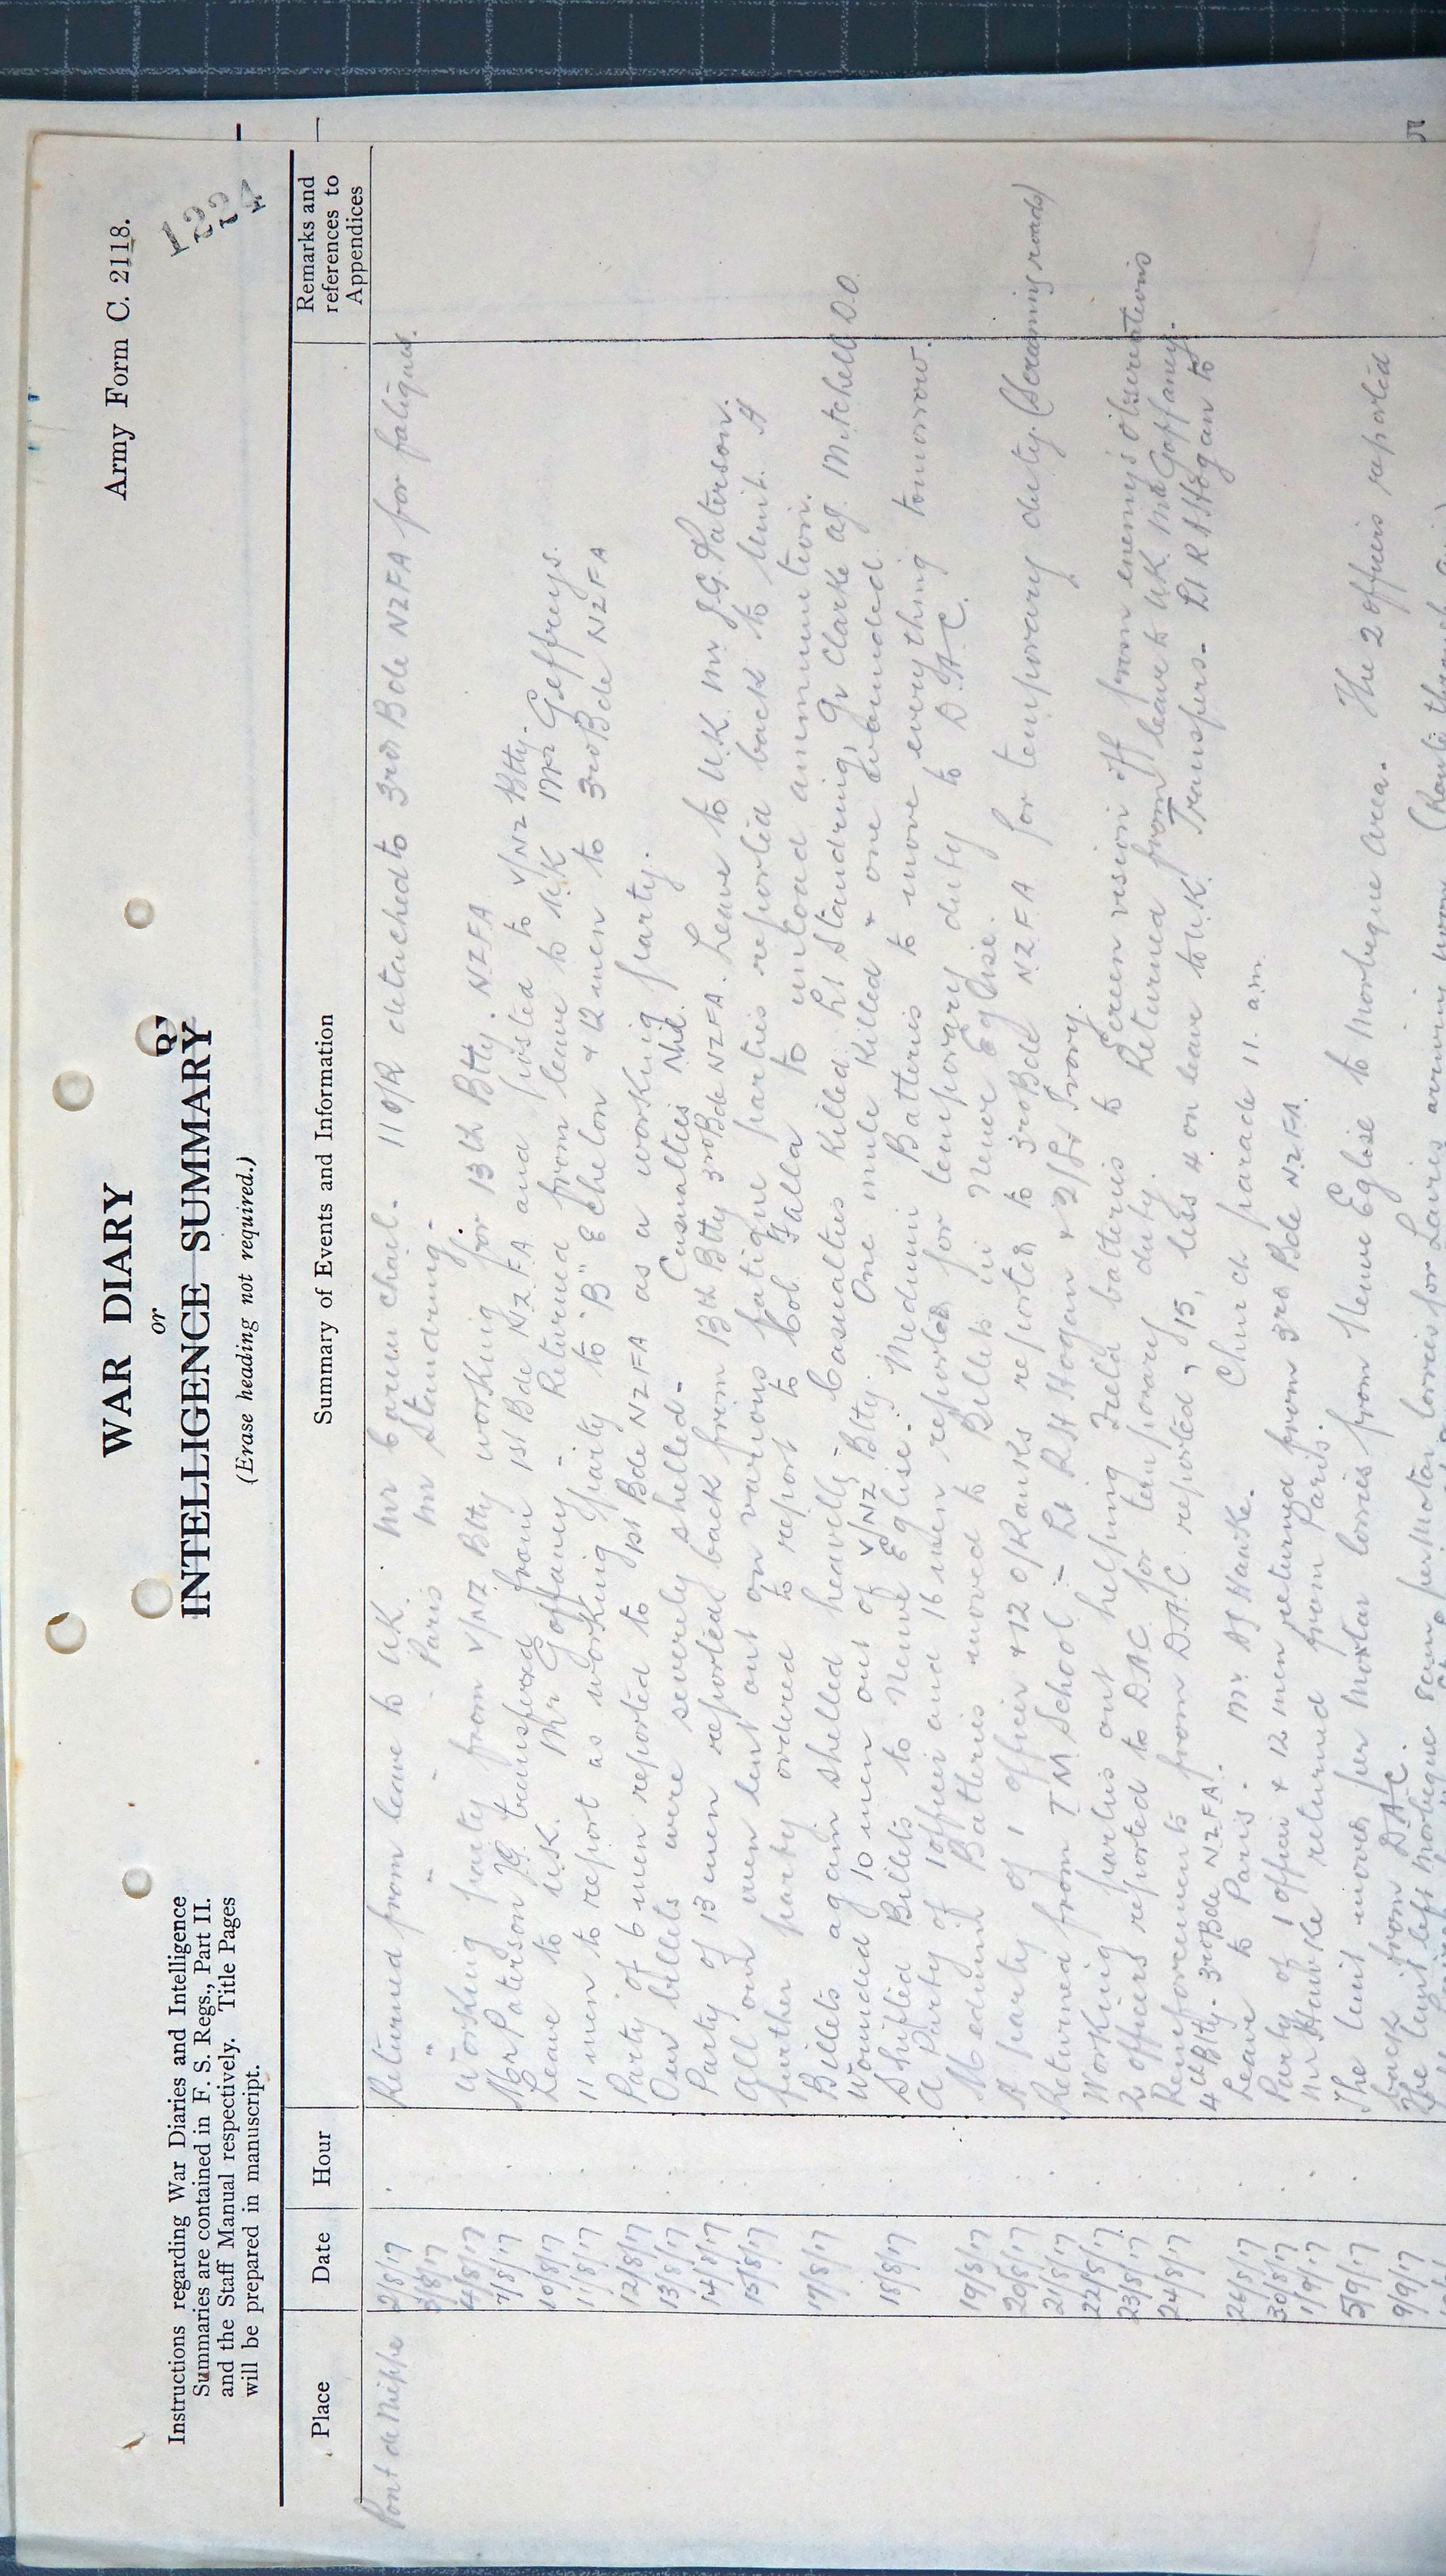 Army Form C. 2118.
1224
WAR DIARY
or
INTELLIGENCE SUMMARY
(Erase heading not required.)
Instructions regarding War Diaries and Intelligence
Summaries are contained in F. S. Regs., Part II.
and the Staff Manual respectively. Title Pages
will be prepared in manuscript.
Place Date Hour Summary of Events and Information Remarks and references to Appendices
Pont de Nieppe 2/8/17 Returned from leave to U.K. Mr Carmichael. 11 O/R detached to 3rd Bde NZFA for fatigues.
3/8/17 " " " " Paris Mr Standring.
4/8/17 Working party from V/NZ Btty working for 13th Btty. NZFA
7/8/17 Mr Paterson JG transferred from 1st Bde NZFA and posted to V/NZ Btty.
10/8/17 Leave to UK. Mr Gaffaney - Returned from leave to UK Mr Geffreys.
11/8/17 11 men to report as working party to "B" Echelon & 12 men to 3rd Bde NZFA
12/8/17 Party of 6 men reported to 1st Bde NZFA as a working party.
13/8/17 Our billets were severely shelled. Casualties Nil.
14/8/17 Party of 13 men reported back from 13th Btty 3rd Bde NZFA. Leave to U.K. Mr J.G. Paterson.
15/8/17 All our men lent out on various fatigue parties reported back to Unit. A
further party ordered to report to Col Falla to unload ammunition.
17/8/17 Billets again shelled heavily - Casualties Killed Lt Standring, Gr Clarke ag. Mitchell D.O.
Wounded 10 men out of V/NZ Btty. One mule killed & one wounded.
18/8/17 Shifted Billets to Neuve Eglise. Medium Batteries to move everything tomorrow.
A Party of 1 officer and 16 men reported for temporary duty to D.A.C.
19/8/17 Medium Batteries moved to Billets in Neuve Eglise.
20/8/17 A party of 1 officer & 12 O/Ranks reported to 3rd Bde NZFA for temporary duty. (Screening roads)
21/8/17 Returned from T M School :- Lt R St Hogan & 2/Lt Ivory.
22/8/17 Working parties out helping Field batteries to screen vision off from enemy's observations
23/8/17 2 officers reported to D.A.C for temporary duty. Returned from leave to UK Mr Gaffaney.
24/8/17 Reinforcements from D.A.C reported, 15, less 4 on leave to U.K. Transfers. Lt R St Hogan to
4th Btty. 3rd Bde NZFA.
26/8/17 Leave to Paris. Mr AJ Hawke. Church parade 11. a.m.
30/8/17 Party of 1 officer & 12 men returned from 3rd Bde NZFA.
1/9/17 Mr Hawke returned from Paris.
5/9/17 The Unit moved per Motor lorries from Neuve Eglise to Morbeque Area. The 2 officers reported
back from DAC.
9/9/17 The Unit left Morbeque per motor lorries for